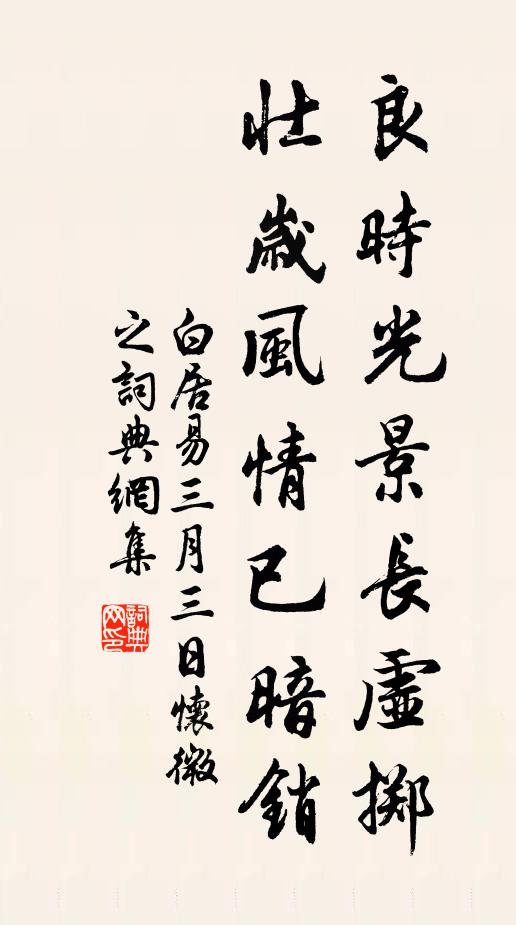 良時光景長虛擲
壯歲風情已暗銷
白居易三月三日懷微
之詞典網集
詞典
网印